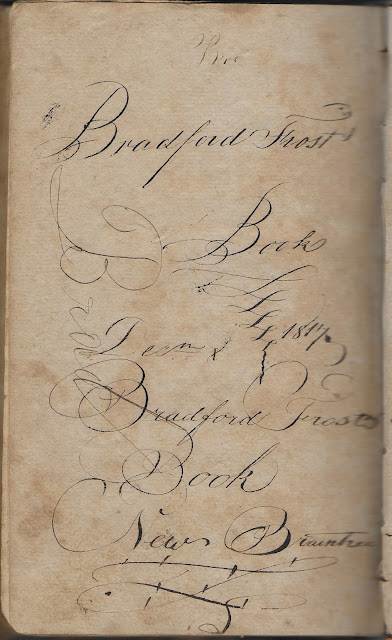 Bradford Frosts
Book
1817
Bradford Frosts
Book
New Braintree